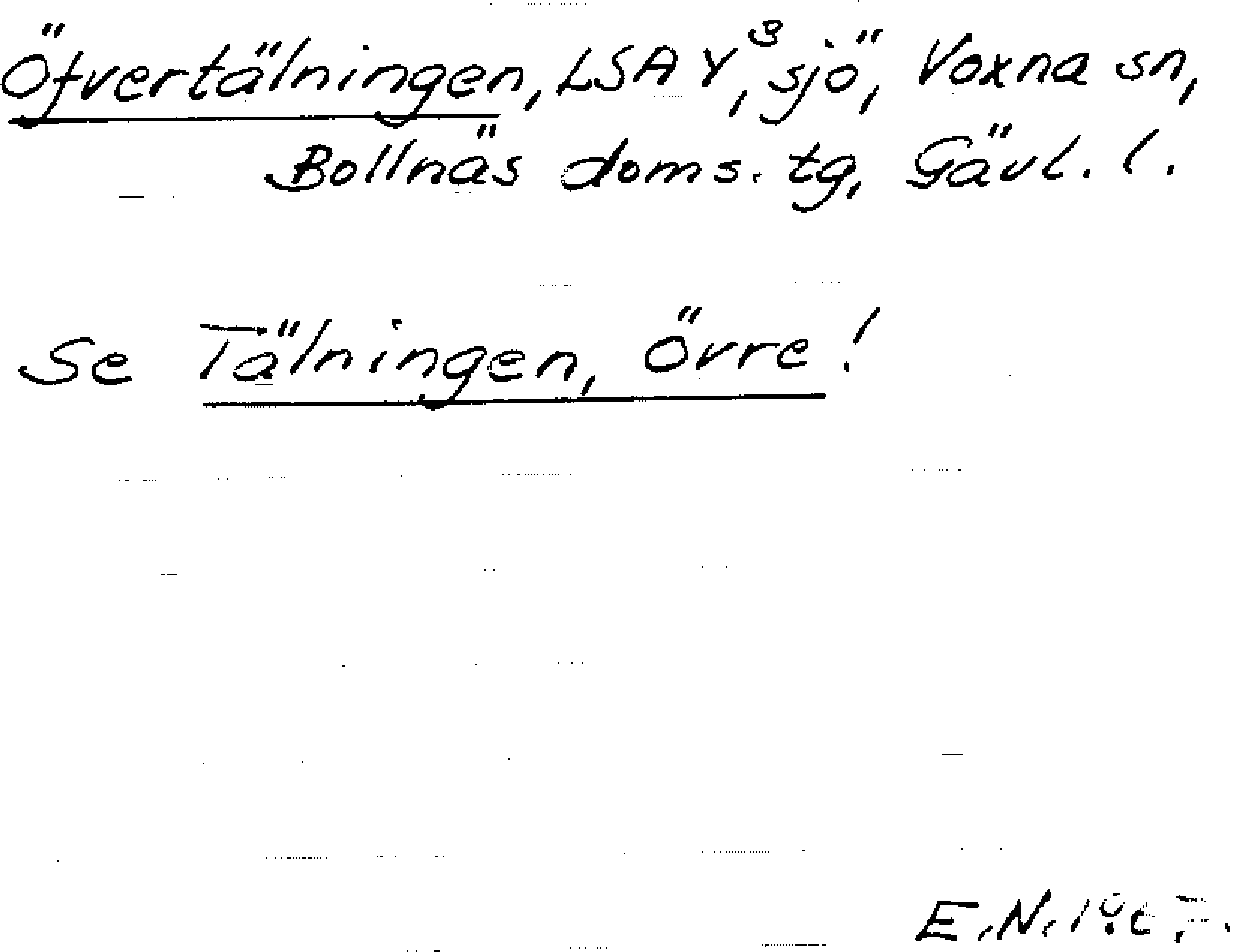 Öfvertälningen, LSA Y³, sjö, Voxna sn,
Bollnäs doms. tg, Gävl. l.
Se Tälningen, Övre!
E.N. 1967.